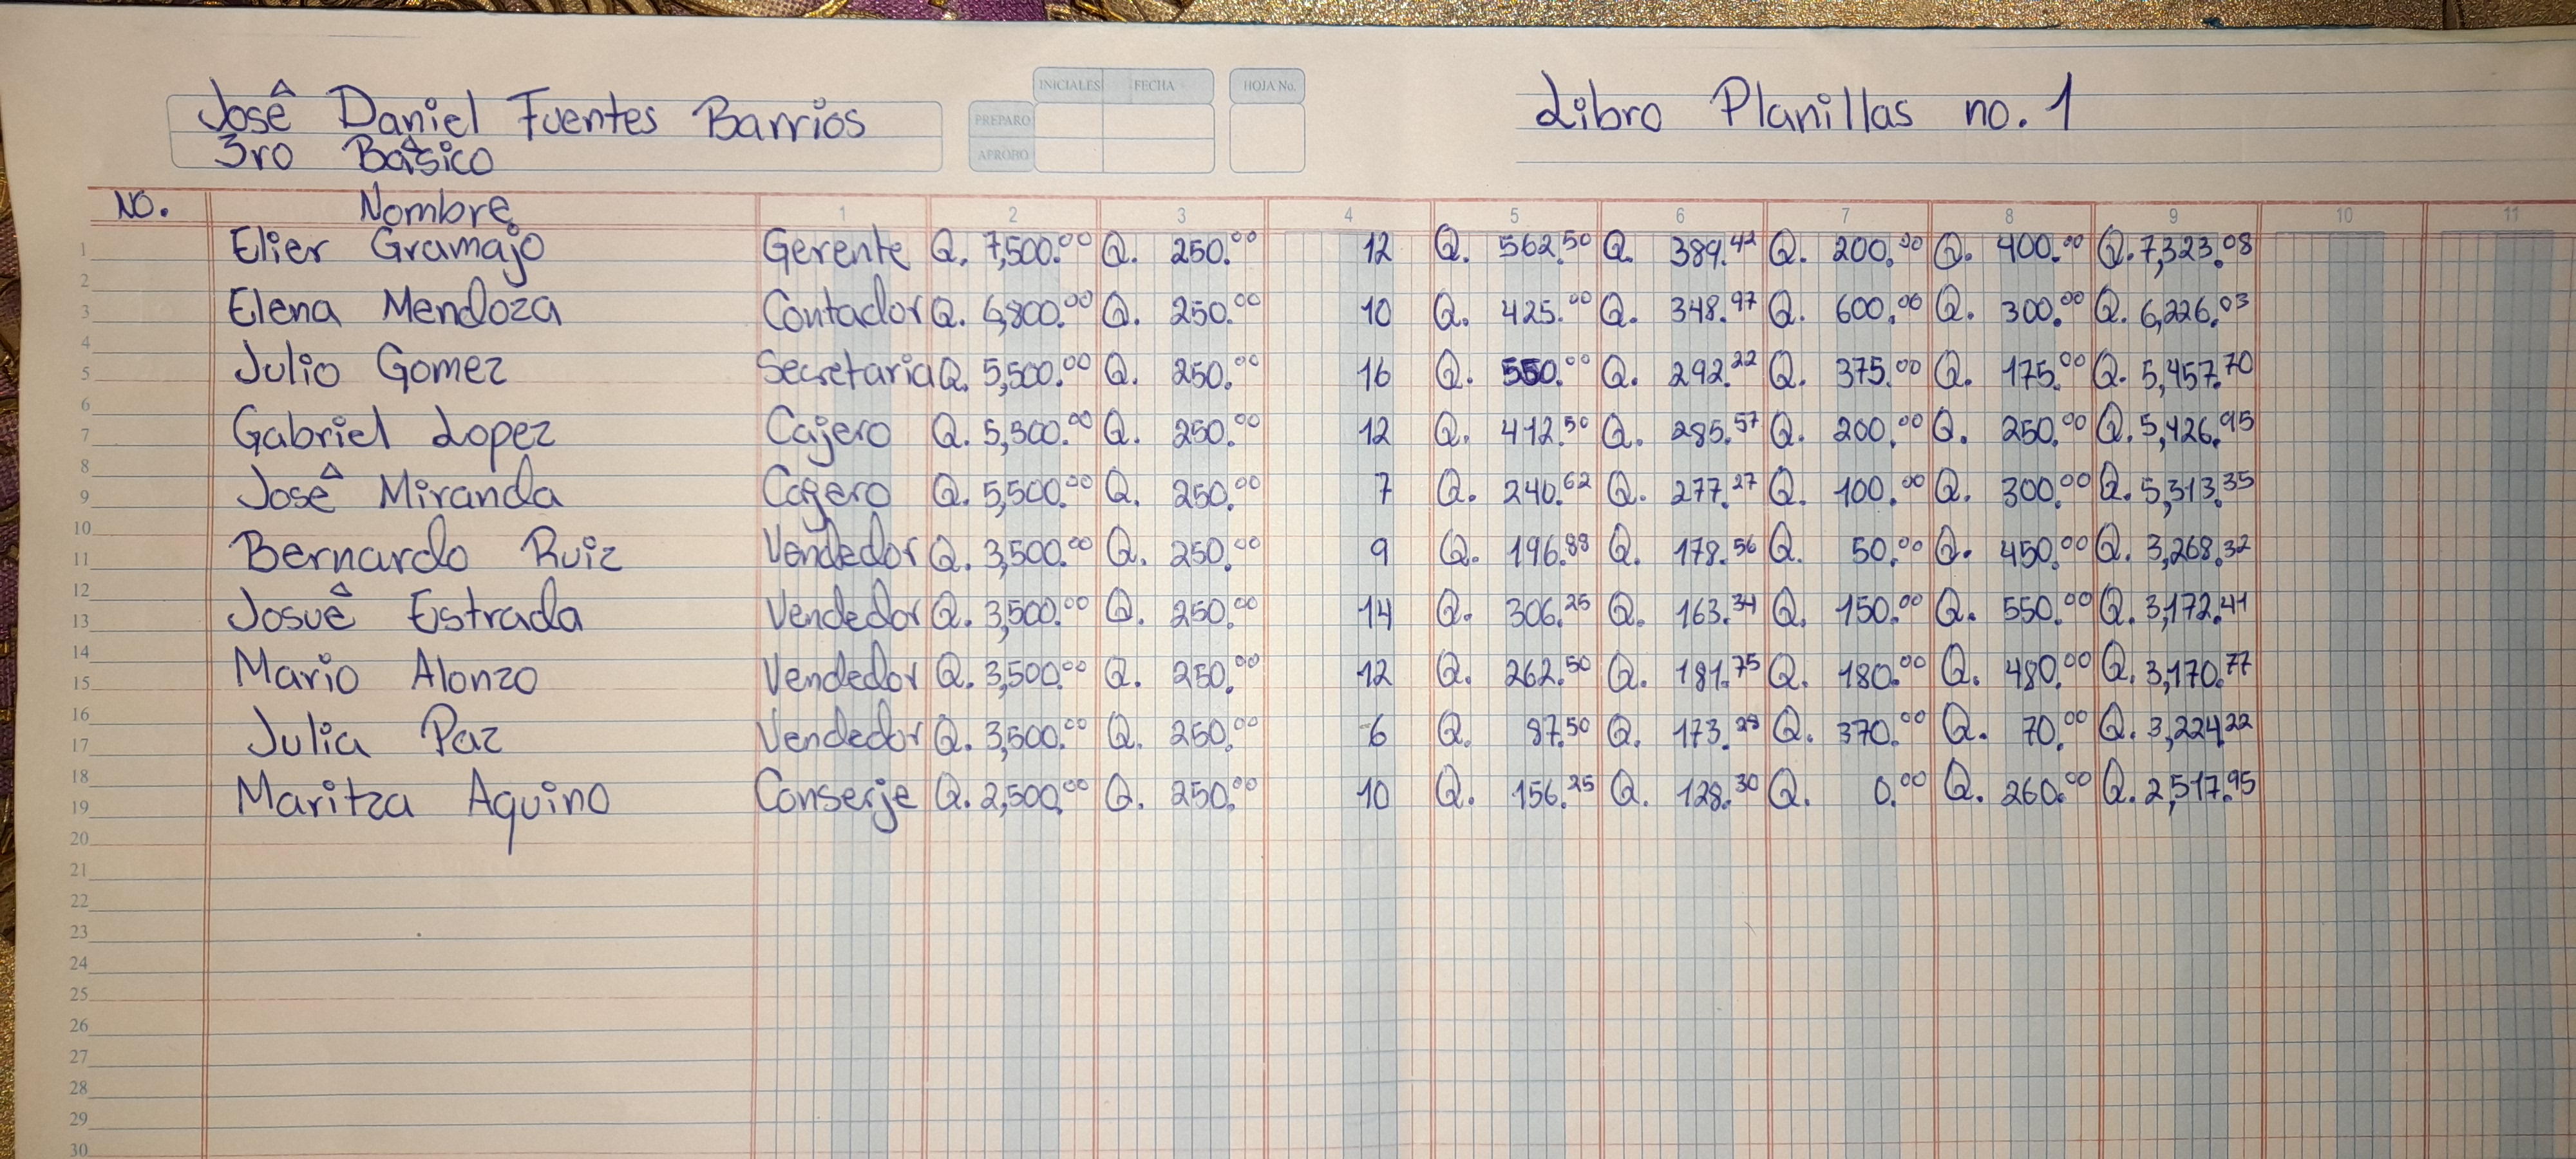 INICIALES FECHA HOJA No.
José Daniel Fuentes Barrios PREPARO Libro Planillas no. 1
3ro Básico APROBO
NO. Nombre 1 2 3 4 5 6 7 8 9 10 11
1 Elier Gramajo Gerente Q. 7,500.00 Q. 250.00 12 Q. 562.50 Q. 389.42 Q. 200.00 Q. 400.00 Q. 7,323.08
2
3 Elena Mendoza Contador Q. 6,800.00 Q. 250.00 10 Q. 425.00 Q. 348.97 Q. 600.00 Q. 300.00 Q. 6,226.03
4
5 Julio Gomez Secretaria Q. 5,500.00 Q. 250.00 16 Q. 550.00 Q. 292.22 Q. 375.00 Q. 175.00 Q. 5,457.70
6
7 Gabriel Lopez Cajero Q. 5,500.00 Q. 250.00 12 Q. 412.50 Q. 285.57 Q. 200.00 Q. 250.00 Q. 5,426.95
8
9 José Miranda Cajero Q. 5,500.00 Q. 250.00 7 Q. 240.62 Q. 277.27 Q. 100.00 Q. 300.00 Q. 5,313.35
10
11 Bernardo Ruiz Vendedor Q. 3,500.00 Q. 250.00 9 Q. 196.88 Q. 178.56 Q. 50.00 Q. 450.00 Q. 3,268.32
12
13 Josué Estrada Vendedor Q. 3,500.00 Q. 250.00 14 Q. 306.25 Q. 163.34 Q. 150.00 Q. 550.00 Q. 3,172.41
14
15 Mario Alonzo Vendedor Q. 3,500.00 Q. 250.00 12 Q. 262.50 Q. 181.75 Q. 180.00 Q. 480.00 Q. 3,170.77
16
17 Julia Paz Vendedor Q. 3,500.00 Q. 250.00 6 Q. 87.50 Q. 173.28 Q. 370.00 Q. 70.00 Q. 3,224.22
18
19 Maritza Aquino Conserje Q. 2,500.00 Q. 250.00 10 Q. 156.25 Q. 128.30 Q. 0.00 Q. 260.00 Q. 2,517.95
20
21
22
23
24
25
26
27
28
29
30